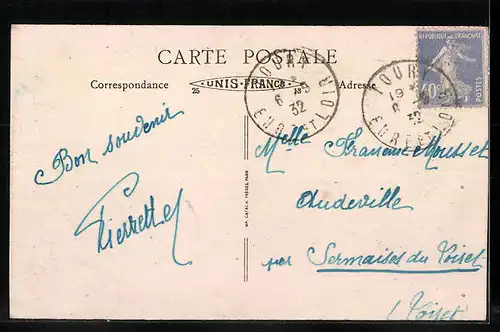 CARTE POSTALE
Correspondance
25 UNIS-FRANCE 18
Adresse
TOURY
6 -8
32
EURE ET LOIR
TOURY
19
6 -8
32
EURE ET LOIR
REPUBLIQUE FRANÇAISE
40c
POSTES
Bon souvenir
Pierrette
Melle Mousset
Audeville
par Sermaises du Loiret
(Loiret)